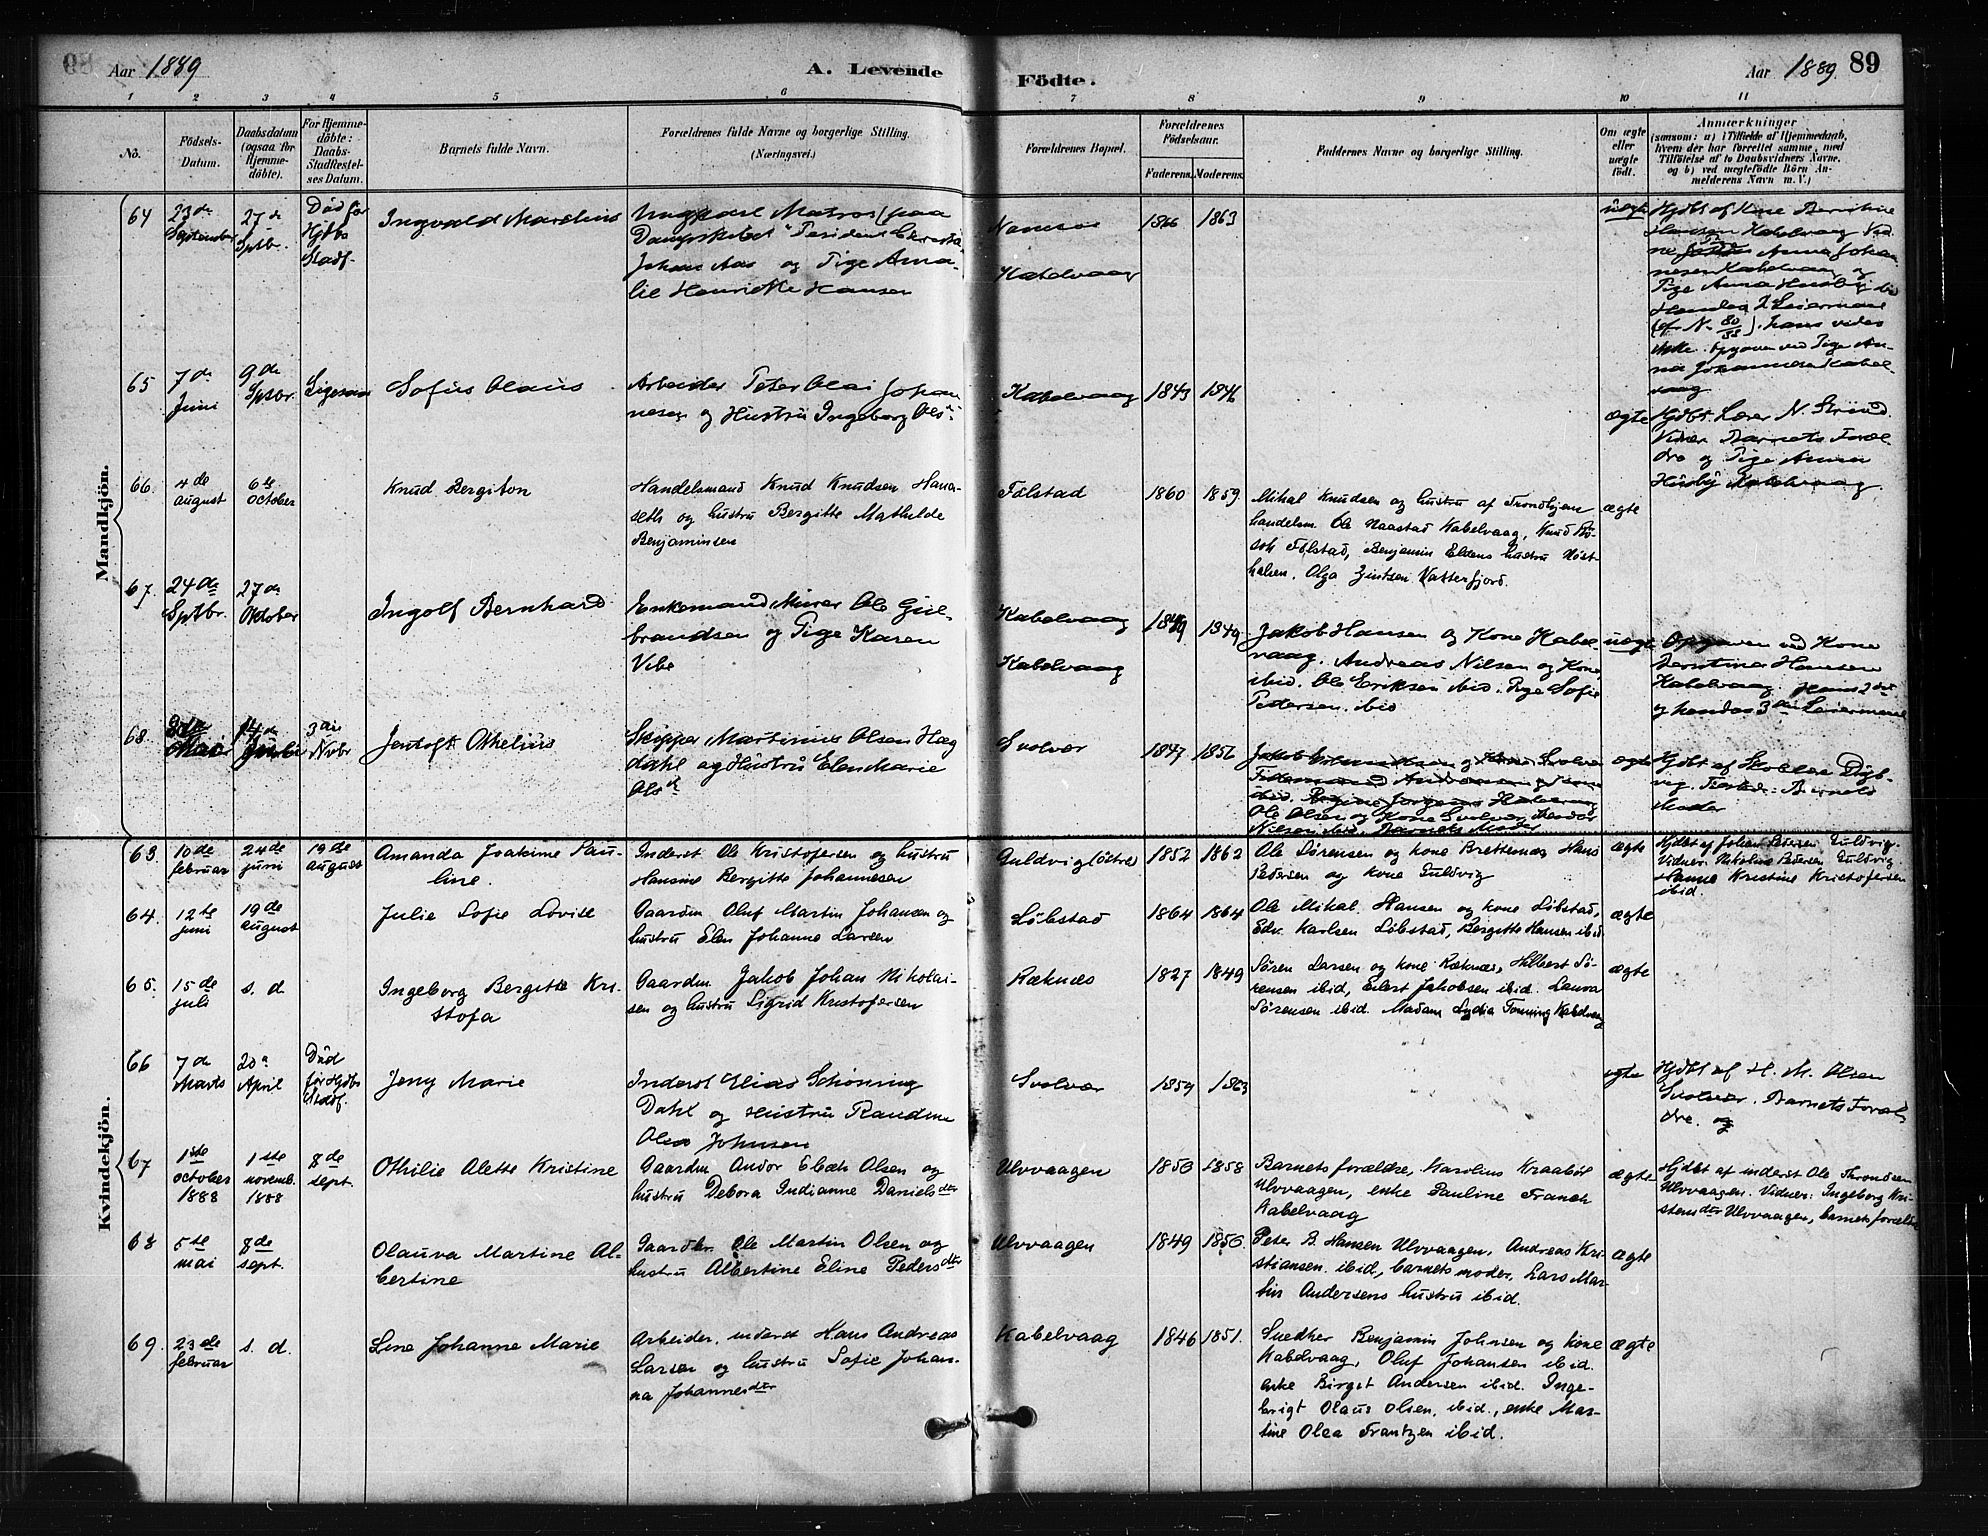 Aar 1889
A. Levende
Födte.
Aar 1889. 89
1 2 3 4 5 6 7 8 9 10 11
No.
Födsels-
Datum.
Daabsdatum
(ogsaa for
Hjemme-
döbte).
For Hjemme-
döbte:
Daabs-
Stadfestel-
ses Datum.
Barnets fulde Navn.
Forældrenes fulde Navne og borgerlige Stilling.
(Næringsvei.)
Forældrenes Bopæl.
Forældrenes
Födselsaar.
Faderens. Moderens.
Faddernes Navne og borgerlige Stilling.
Om ægte
eller
uægte
födt.
Anmærkninger
(saasom: a) i Tilfælde af Hjemmedaab,
hvem der har forrettet samme, med
Tilföielse af to Daabsvidners Navne.
og b) ved uægtefödte Börn An-
melderens Navn m. V.)
Mandkjön.
64
23de
September
27de
Sptbr.
Död før
Hjdbs
Stadf.
Ingvald Marelius
Ungkarl Matros (paa
Dampskibet
Johan Aas og Pige Ama-
lie Henrikke Hansen
Namsos
Kabelvaag
1866 1863
uægte
Hjdbt af Kone Berntine
Hansen Kabelvaag Vid
ne Anna Johan
nesen Kabelvaag og
Pige Anna Husby
Hendes 2 Leiermaal
(cfr N. 80/88). hans vides
ikke. Opgaven ved Pige An-
na Johannesen Kabel-
vaag
65
7de
Juni
9de
Sptbr.
Ligesaa
Sofus Olaus
Arbeider Peter Olai Johan
nesen og Hustru Ingeborg Olsdr
Kabelvaag
1843 1846
ægte
Hjdbt. Lærer N. Strand
Vidner Barnets Foræl-
dre og Pige Anna
Husby Kabelvaag
66.
4de
august
6te
October
Knud Bergiton
Handelsmand Knud Knudsen Hana-
seth og hustru Bergitte Mathilde
Benjaminsen
Følstad
1860 1859
Mikal Knudsen og hustru af Trondhjem
handelsm Ole Naastad Kabelvaag, Knud
Følstad, Benjamin Eldens hustru
Olga Vatterfjord.
ægte
67.
24de
Sptbr.
27de
Oktober
Ingolf Bernhard
Enkemand Murer Ole Gul-
brandsen og Pige Karen
Vibe
Kabelvaag
Kabelvaag
1849 1849
Jakob Hansen og Kone Kabel
vaag. Andreas Nilsen og Kone
ibid. Ole Eriksen ibid. Pige Sofie
Pedersen. ibid
uægte
Opgaven ved Kone
Berntine Hansen
Kabelvaag Hans 2det
og hendes 3die Leiermaal
68.
Mai
14de
Juli
3die
Nvbr
Jentoft Othelius
Skipper Martinus Olsen Hag
dahl og Hustru Elen Marie
Olsdr
Svolvær
1847 1856
Ole Olsen og Kone Svolvær
Nilsen ibid. Barnets Moder
ægte
Hjdbt af
Barnets
Moder
Kvindekjön.
63
10de
februar
24de
juni
19de
august
Amanda Joakime Pau-
line.
Inderst Ole Kristofersen og hustru
Hansine Bergitte Johannesen
Guldvig (östre)
1852 1862
Ole Sørensen og kone Brettesnæs Hans
Pedersen og kone Guldvig
ægte
Hjdbt af Johan Pedersen Guldvig.
Vidner: Nikoline Pedersen Guldvig
Hanna Kristine Kristofersen
ibid.
64.
12te
juni
19de
august
Julie Sofie Lovise
Gaardm Oluf Martin Johansen og
hustru Elen Johanna Larsen
Løbstad
1864 1864
Ole Mikal Hansen og kone Løbstad,
Edv. Karlsen Løbstad, Bergitte Hansen ibid
ægte
65.
15de
juli
s. d.
Ingeborg Bergitte Kri-
stofa
Gaardm Jakob Johan Nikolai-
sen og hustru Sigrid Kristofersen
Ræknes
1827 1849
Søren Larsen og kone Ræknes, Hilbert Sö-
rensen ibid, Eilert Jakobsen ibid. Laura
Sørensen ibid. Madam Lydia Tonning Kabelvaag
ægte
66
7de
Marts
20de
April
Død
før Hjdbs
Stadf.
Jeny Marie
Inderst Elias Schønning
Dahl og Hustru Randine
Olea Johnsen
Svolvær
1859 1863
ægte
Hjdbt af H. M. Olsen
Svolvær. Barnets Foræl
dre. og
67
1ste
october
1888
1ste
novemb.
1888
8de
sept.
Othilie Alette Kristine
Gaardm Andor Ebæk Olsen og
hustru Debora Indianne Danielsdtr
Ulvvaagen
1850 1858
Barnets forældre, Karolius Kraaböl
Ulvvaagen, enke Pauline Franck
Kabelvaag
ægte
Hjdbt af inderst Ole Throndsen
Ulvvaagen. Vidner: Ingeborg Kri-
stensdtr Ulvvaagen, barnets forældre
68
5te
mai
8de
sept.
Olauva Martine Al-
bertine
Gaardbr. Ole Martin Olsen og
hustru Albertine Eline Pedersdtr
Ulvvaagen
1849 1850.
Peter B. Hansen Ulvvaagen, Andreas Kri-
stiansen. ibid, barnets moder, Lars Mar-
tin Andersens hustru ibid.
ægte
69.
23de
februar
s. d.
Lene Johanne Marie
Arbeider, inderst Hans Andreas
Larsen og hustru Sofie Johan-
na Johannesdtr
Kabelvaag
1846 1851.
Snedker Benjamin Johnsen og kone
Kabelvaag, Oluf Johansen ibid.
enke Birget Andersen ibid. Inge-
brigt Olaus Olsen, ibid., enke Mar-
tine Olea Frantzen ibid.
ægte